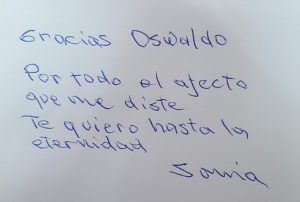 Gracias Oswaldo
Por todo el afecto
que me diste
Te quiero hasta la
eternidad
Sonia